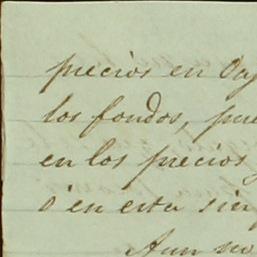 precios en
los fondos, pue
en los precios
ó en esta sin
Aun no